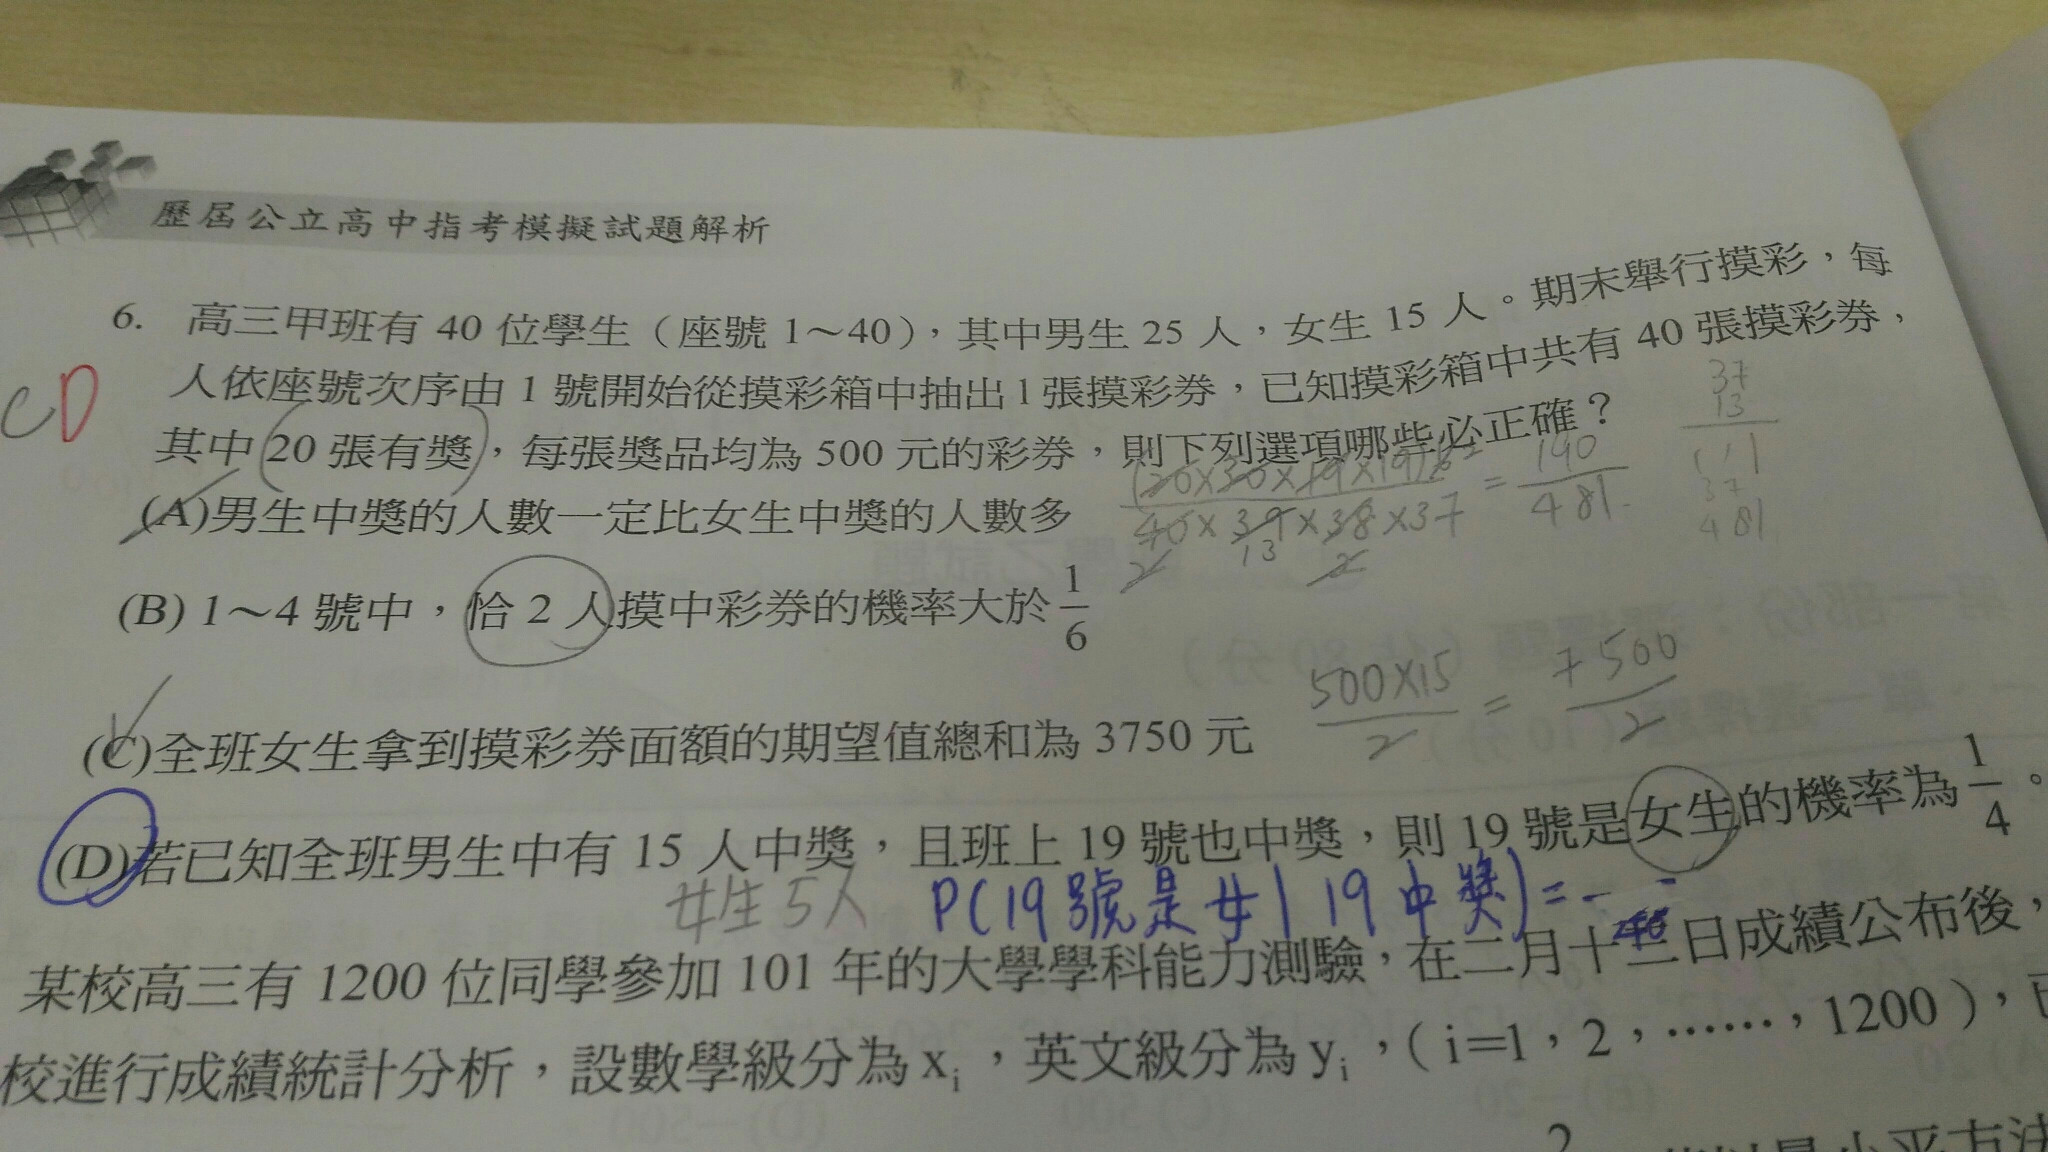 歷屆公立高中指考模擬試題解析
6. 高三甲班有 40 位學生（座號 1～40），其中男生 25 人，女生 15 人。期末舉行摸彩，每
人依座號次序由 1 號開始從摸彩箱中抽出 1 張摸彩券，已知摸彩箱中共有 40 張摸彩券，
CD
其中 20 張有獎，每張獎品均為 500 元的彩券，則下列選項哪些必正確？
37
13
111
37
481
(A)男生中獎的人數一定比女生中獎的人數多
40×39×38×37
13
2
2
= 190/481
(B) 1～4 號中，恰 2 人摸中彩券的機率大於 1/6
(C)全班女生拿到摸彩券面額的期望值總和為 3750 元
500×15/2 = 7500/2
(D)若已知全班男生中有 15 人中獎，且班上 19 號也中獎，則 19 號是女生的機率為 1/4。
女生5人
P(19號是女|19中獎)=
某校高三有 1200 位同學參加 101 年的大學學科能力測驗，在二月十三日成績公布後，
校進行成績統計分析，設數學級分為 xi，英文級分為 yi，（i=1，2，……，1200），已